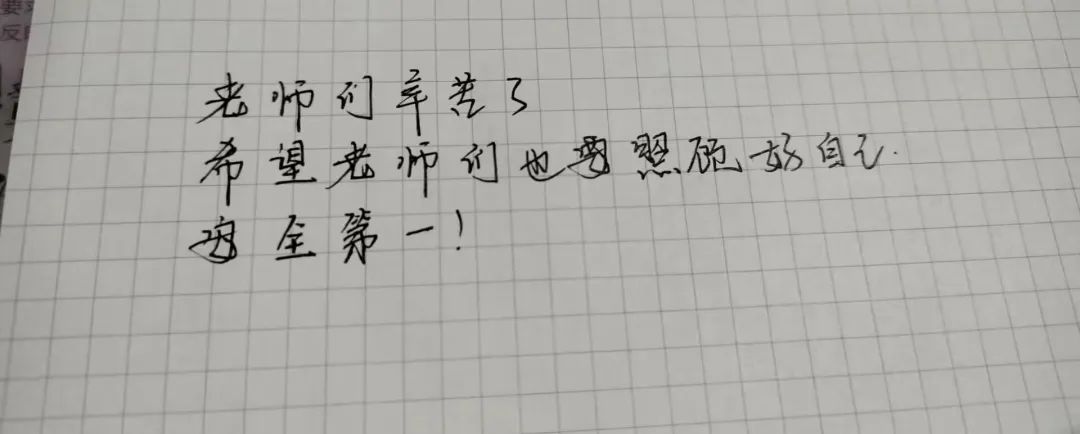 要求
反
老师们辛苦了
希望老师们也要照顾好自己.
安全第一!